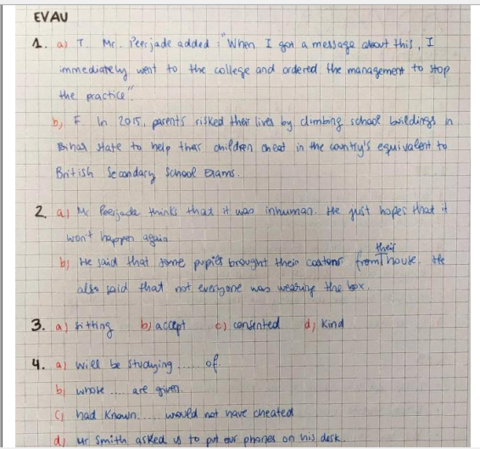 EVAU
1. a) T. Mr. Peerjade added: "When I got a message about this, I
immediately went to the college and ordered the management to stop
the practice".
b) F In 2015, parents risked their lives by climbing school buildings in
Bihar state to help their children cheat in the country's equivalent to
British Secondary School Exams.
2. a) Mr Peerjade thinks that it was inhuman. He just hopes that it
won't happen again
b) He said that some pupils brought their from their house. He
also said that not everyone was wearing the box.
3. a) sitting b) accept c) consented d) kind
4. a) will be studying ..... of
b) whose .... are given.
c) had known .... would not have cheated
d) Mr Smith asked us to put our phones on his desk.